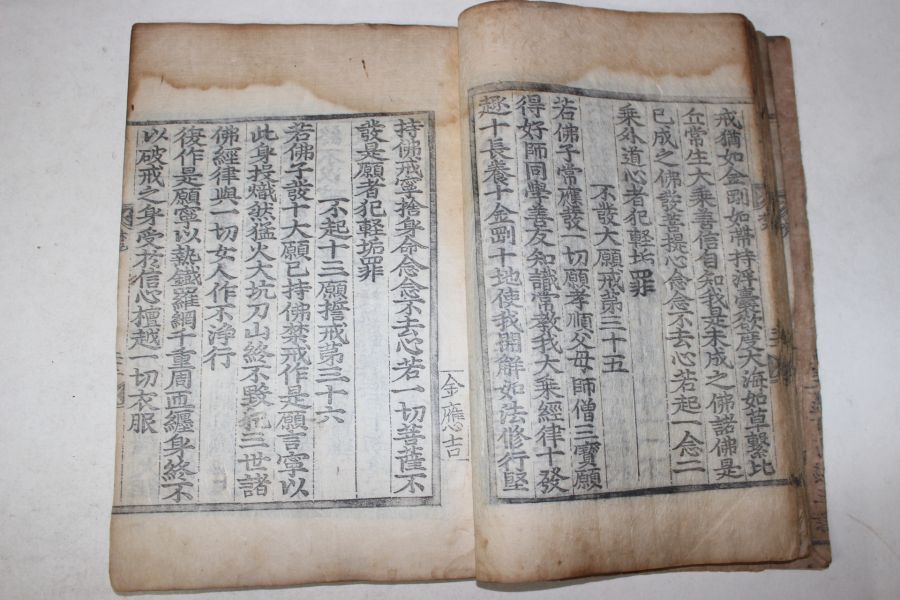 戒猶如金剛如帶持浮囊欲度大海如草繫比
丘常生大乘善信自知我是未成之佛諸佛是
已成之佛發菩提心念念不去心若起一念二
乘外道心者犯輕垢罪
不發大願戒第三十五
若佛子常應發一切願孝順父母師僧三寶願
得好師同學善友知識常教我大乘經律十發
趣十長養十金剛十地使我開解如法修行堅
金應吉
持佛戒寧捨身命念念不去心若一切菩薩不
發是願者犯輕垢罪
不起十三願誓戒第三十六
若佛子發十大願已持佛禁戒作是願言寧以
此身投熾然猛火大坑刀山終不毀犯三世諸
佛經律與一切女人作不淨行
復作是願寧以熱鐵羅網千重周匝纏身終不
以破戒之身受於信心檀越一切衣服